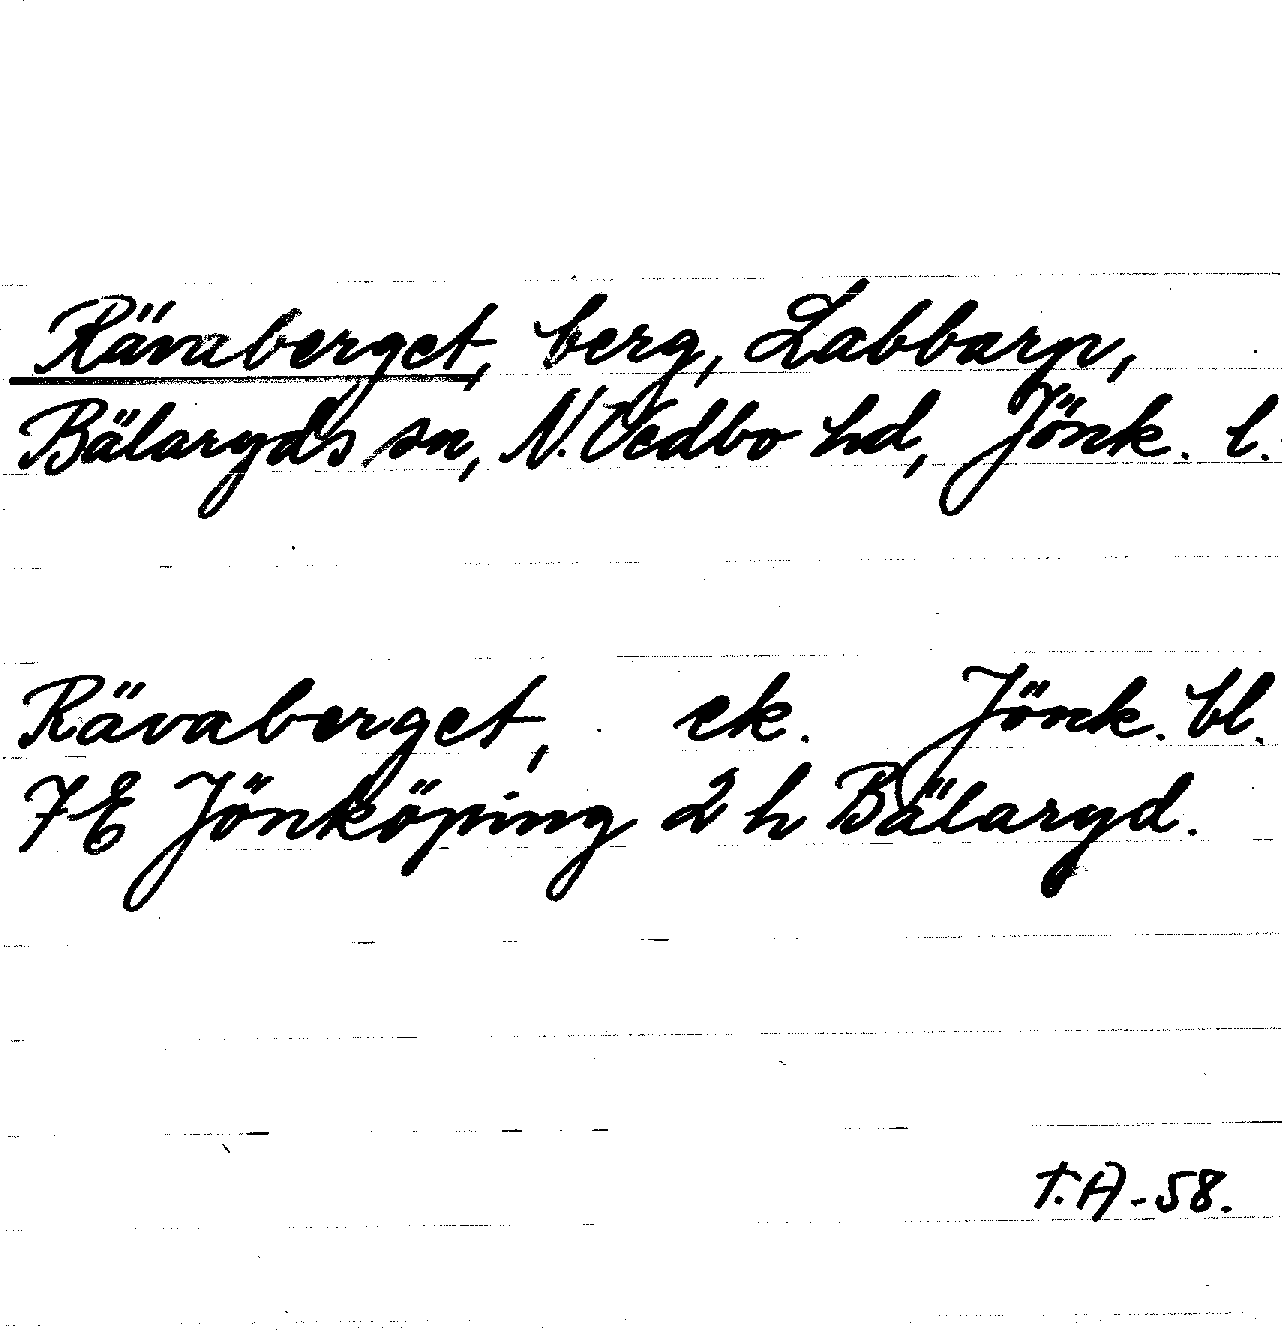 Rävaberget, berg, Labbarp,
Bälaryds sn, N. Vedbo hd, Jönk. l.
Rävaberget, ek. Jönk. bl.
7E Jönköping 2 h Bälaryd.
T.A-58.